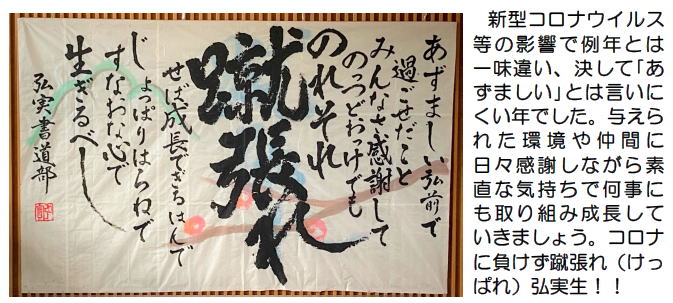 あずましい弘前で
過ごせだこと
みんなさ感謝して
のっつどわっけでも
のれそれ
蹴張れ
せば成長でぎるはんで
じょっぱりはらねで
すなおな心で
生ぎるべし
弘実書道部
新型コロナウイルス
等の影響で例年とは
一味違い、決して「あ
ずましい」とは言いに
くい年でした。与えら
れた環境や仲間に
日々感謝しながら素
直な気持ちで何事に
も取り組み成長して
いきましょう。コロナ
に負けず蹴張れ（けっ
ぱれ）弘実生！！